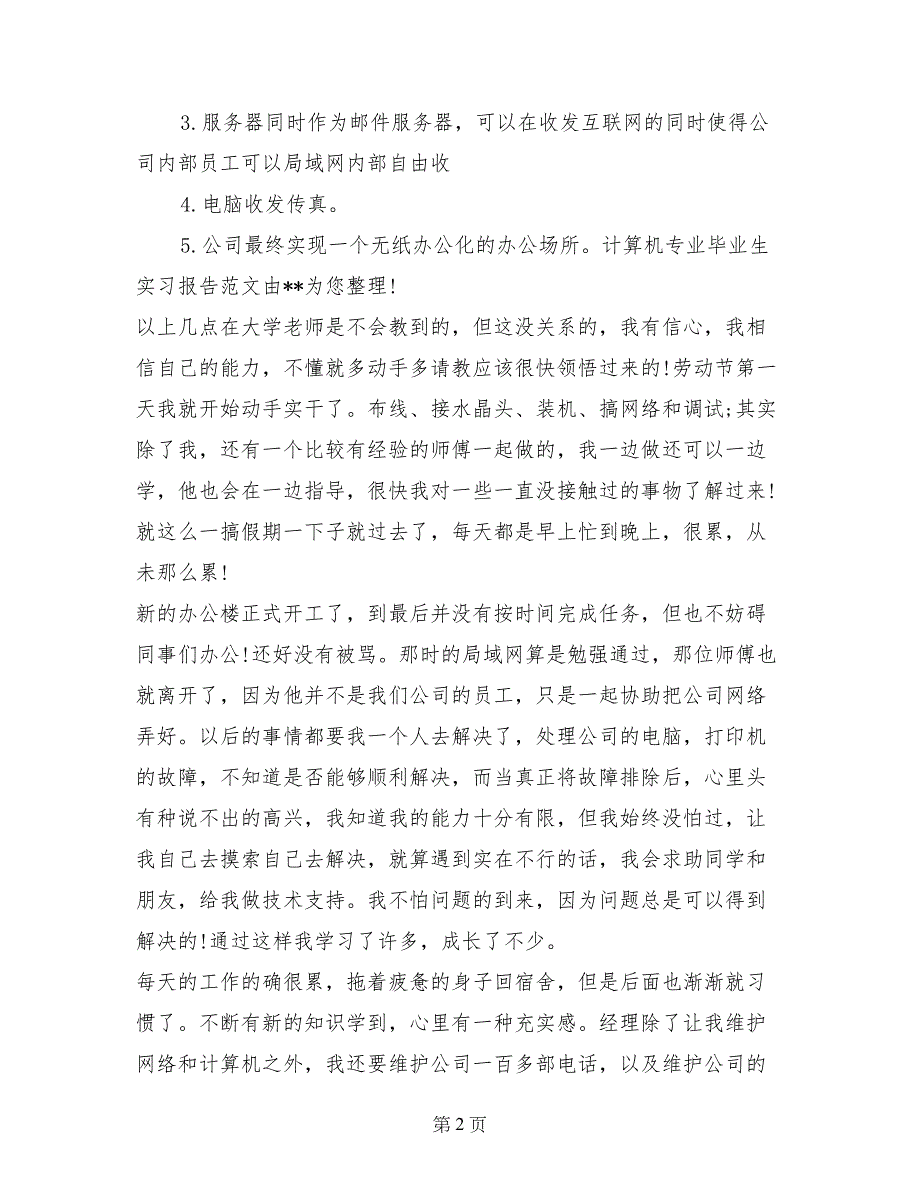 3.服务器同时作为邮件服务器，可以在收发互联网的同时使得公
司内部员工可以局域网内部自由收
4.电脑收发传真。
5.公司最终实现一个无纸办公化的办公场所。计算机专业毕业生
实习报告范文由**为您整理!
以上几点在大学老师是不会教到的，但这没关系的，我有信心，我相
信自己的能力，不懂就多动手多请教应该很快领悟过来的!劳动节第一
天我就开始动手实干了。布线、接水晶头、装机、搞网络和调试;其实
除了我，还有一个比较有经验的师傅一起做的，我一边做还可以一边
学，他也会在一边指导，很快我对一些一直没接触过的事物了解过来!
就这么一搞假期一下子就过去了，每天都是早上忙到晚上，很累，从
未那么累!
新的办公楼正式开工了，到最后并没有按时间完成任务，但也不妨碍
同事们办公!还好没有被骂。那时的局域网算是勉强通过，那位师傅也
就离开了，因为他并不是我们公司的员工，只是一起协助把公司网络
弄好。以后的事情都要我一个人去解决了，处理公司的电脑，打印机
的故障，不知道是否能够顺利解决，而当真正将故障排除后，心里头
有种说不出的高兴，我知道我的能力十分有限，但我始终没怕过，让
我自己去摸索自己去解决，就算遇到实在不行的话，我会求助同学和
朋友，给我做技术支持。我不怕问题的到来，因为问题总是可以得到
解决的!通过这样我学习了许多，成长了不少。
每天的工作的确很累，拖着疲惫的身子回宿舍，但是后面也渐渐就习
惯了。不断有新的知识学到，心里有一种充实感。经理除了让我维护
网络和计算机之外，我还要维护公司一百多部电话，以及维护公司的
第 2 页